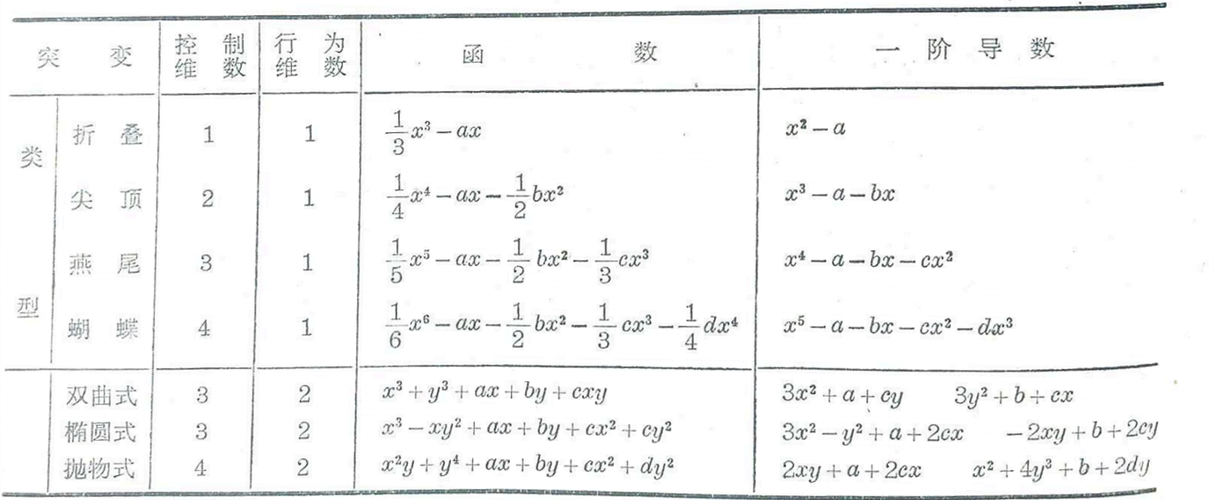 突变 控制维数 行为维数 函数 一阶导数
类型
折叠 1 1 \frac{1}{3}x³-ax x²-a
尖顶 2 1 \frac{1}{4}x⁴-ax-\frac{1}{2}bx² x³-a-bx
燕尾 3 1 \frac{1}{5}x⁵-ax-\frac{1}{2}bx²-\frac{1}{3}cx³ x⁴-a-bx-cx²
蝴蝶 4 1 \frac{1}{6}x⁶-ax-\frac{1}{2}bx²-\frac{1}{3}cx³-\frac{1}{4}dx⁴ x⁵-a-bx-cx²-dx³
双曲式 3 2 x³+y³+ax+by+cxy 3x²+a+cy 3y²+b+cx
椭圆式 3 2 x³-xy²+ax+by+cx²+cy² 3x²-y²+a+2cx -2xy+b+2cy
抛物式 4 2 x²y+y⁴+ax+by+cx²+dy² 2xy+a+2cx x²+4y³+b+2dy